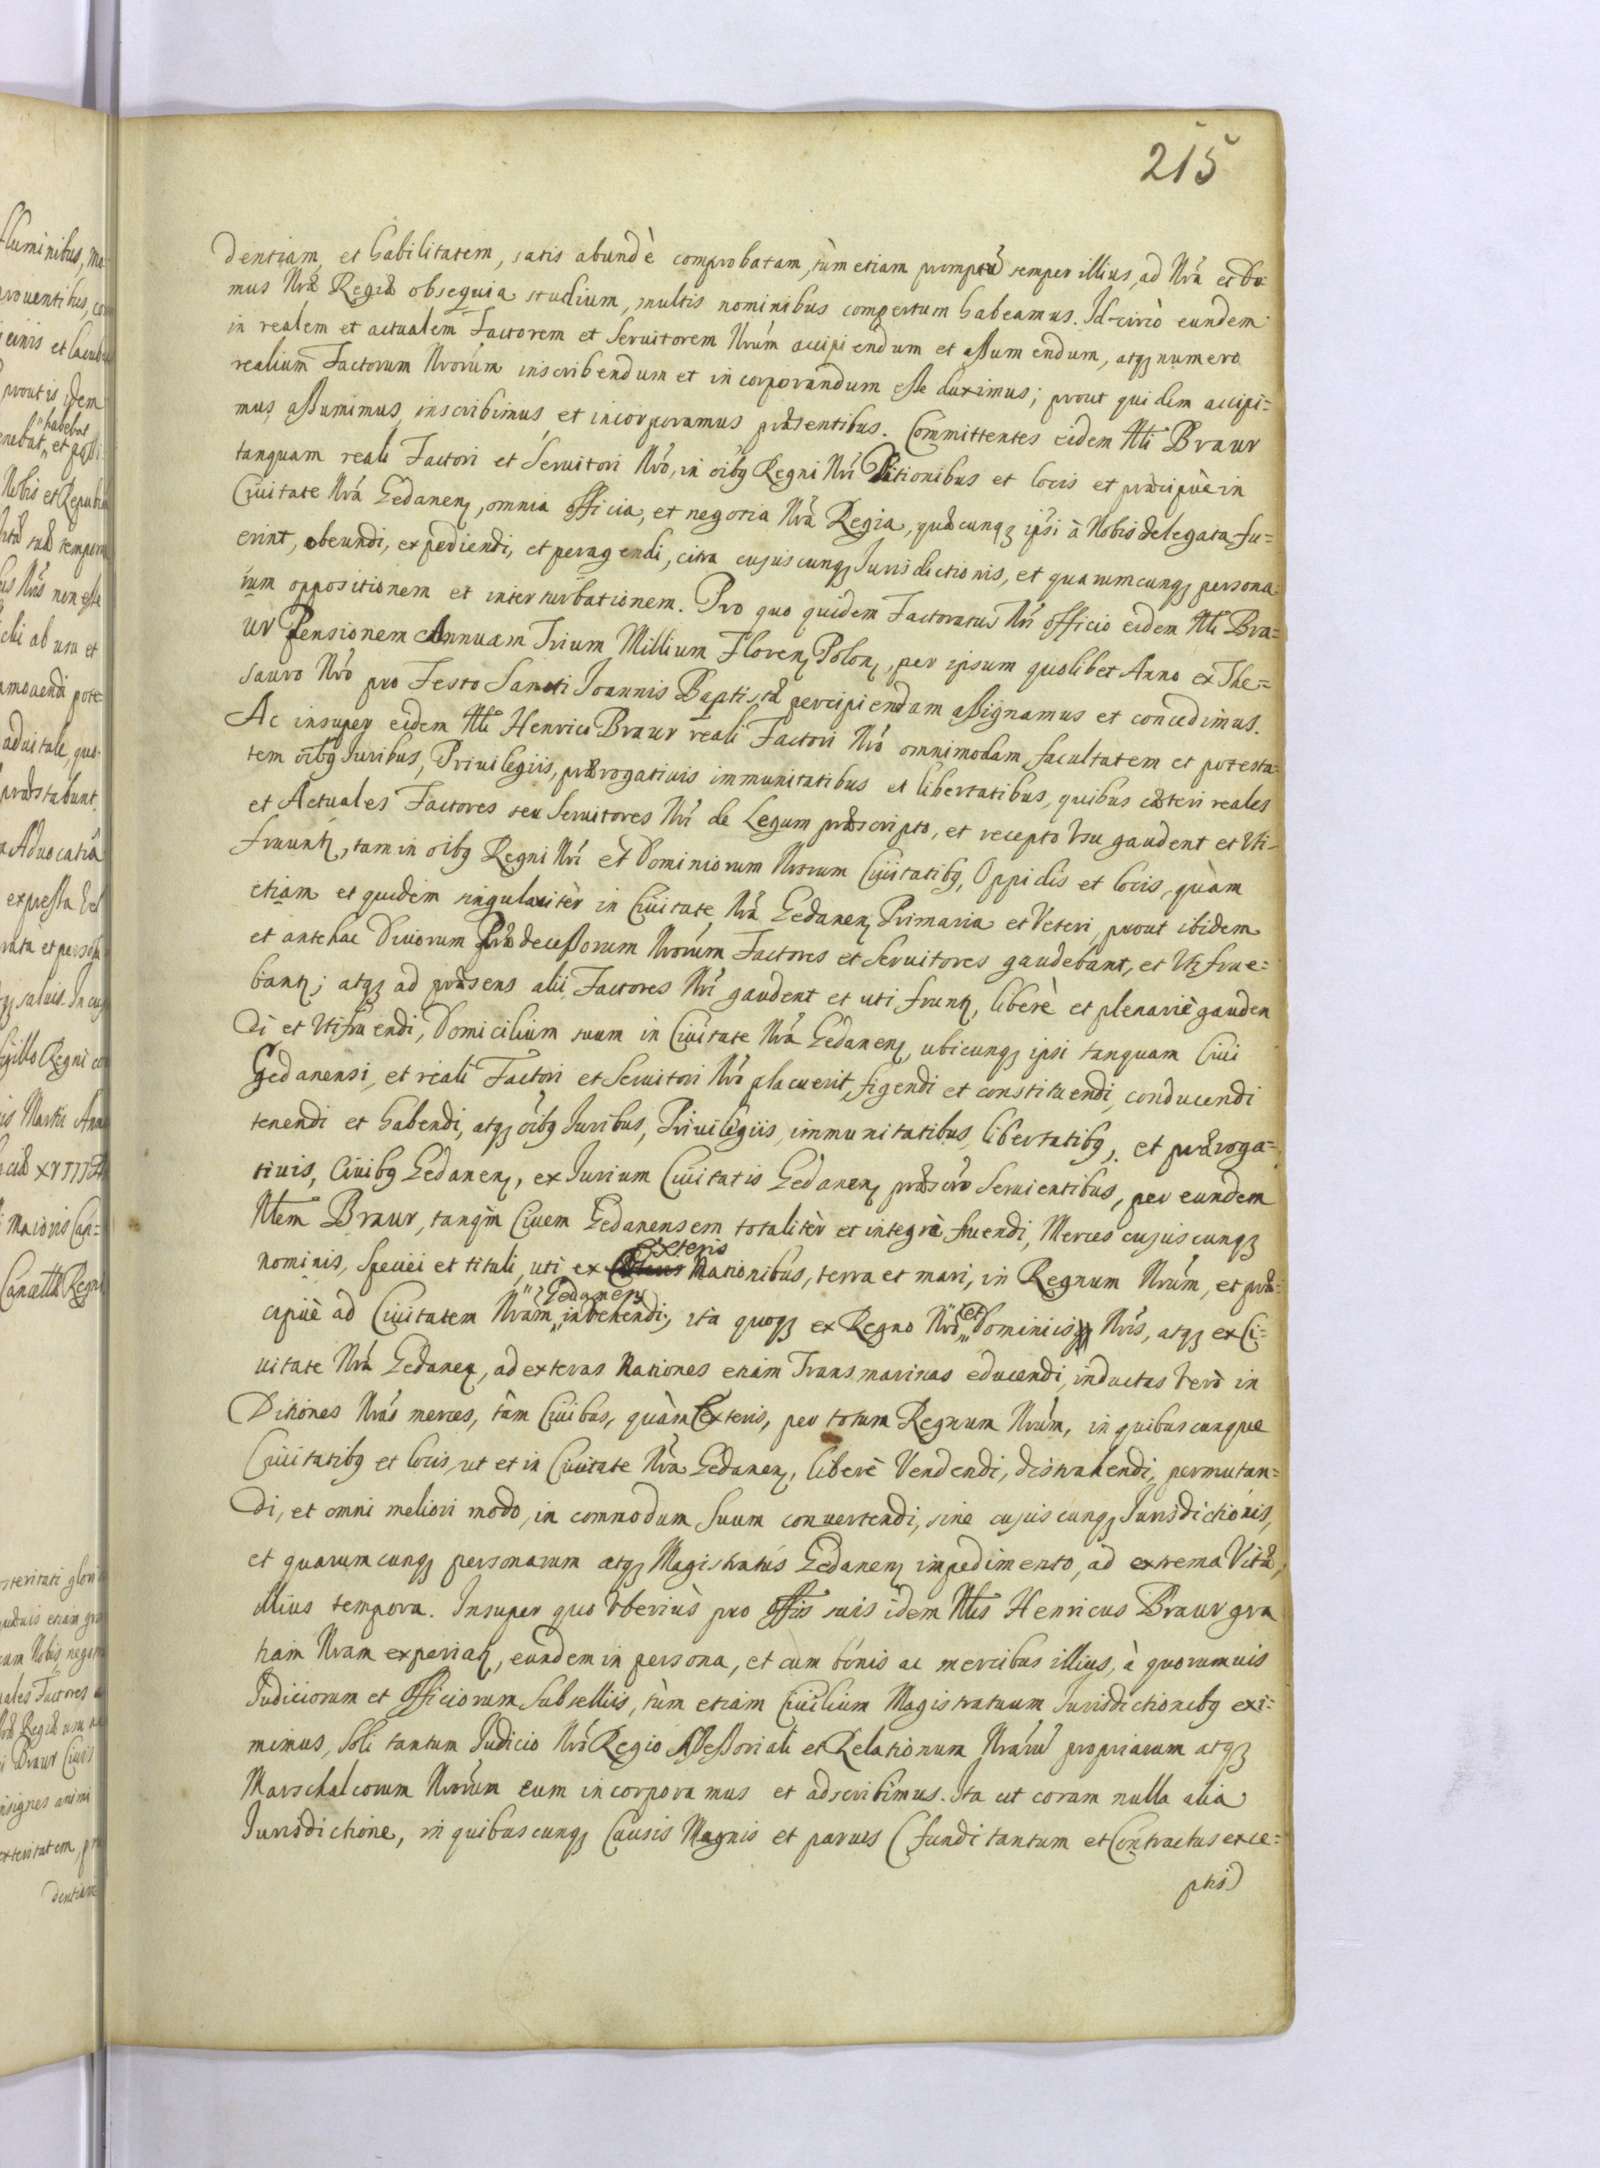 215
dentiam et habilitatem, satis abundè comprobatam, tùm etiam promptũ semper illius, ad Nrã et Do
mus Nræ Regiæ obsequia studium, multis nominibus compertum habeamus. Id-circò eundem
in realem et actualem Factorem et Seruitorem Nrũm accipiendum et assumendum, atq₃ numero
realium Factorum Nrorũm inscribendum et incorporandum esse duximus; prout quidem accipi=
mus assumimus, inscribimus, et incorporamus præsentibus. Committentes eidem Nli Braur
tanquam reali Factori et Seruitori Nrõ, in oĩbq Regni Nrĩ Ditionibus et locis et præcipuè in
Ciuitate Nrã Gedanen, omnia officia, et negotia Nrã Regia, quæcunq₃ ipsi à Nobis delegata fu=
erint, obeundi, expediendi, et peragendi, citra cujuscunq₃ Jurisdictionis, et quarumcunq₃ persona=
rum oppositionem et interturbationem. Pro quo quidem Factoratus Nrĩ officio eidem Nli Bra=
ur Pensionem Annuam Trium Millium Floren Polon, per ipsum quolibet Anno ex The=
sauro Nrõ pro Festo Sancti Joannis Baptistæ percipiendam assignamus et concedimus.
Ac insuper eidem Nli Henrico Braur reali Factori Nrõ omnimodam facultatem et potesta=
tem oĩbq Juribus, Priuilegiis, prærogatiuis immunitatibus et libertatibus, quibus cæteri reales
et Actuales Factores seu Seruitores Nrĩ de Legum præscripto, et recepto Vsu gaudent et Vti-
fruunt, tam in oĩbq Regni Nrĩ et Dominiorum Nrorum Ciuitatibq, Oppidis et locis, quàm
etiam et quidem singularitèr in Ciuitate Nrã Gedanen Primaria et Veteri, prout ibidem
et antehac Diuorum Prædecessorum Nrorũm Factores et Seruitores gaudebant, et Vti frue=
bant; atq₃ ad præsens alii Factores Nrĩ gaudent et uti frunt, liberè et plenariè gauden
di et Vtifruendi, Domicilium suum in Ciuitate Nrã Gedanen, ubicunq₃ ipsi tanquam Ciui
Gedanensi, et reali Factori et Seruitori Nrõ placuerit, figendi et constituendi, conducendi
tenendi et habendi, atq₃ oĩbq Juribus, Priuilegiis, immunitatibus, libertatibq, et præroga=
tiuis, Ciuibq Gedanen, ex Jurium Ciuitatis Gedanen præscrõ Seruientibus, per eundem
Nlem Braur, tanq̃m Ciuem Gedanensem totalitèr et integrè fruendi, Merces cujuscunq₃
nominis, speciei et tituli, uti ex exteris Nationibus, terra et mari, in Regnum Nrũm, et præ-
cipuè ad Ciuitatem Nram Gedanen inuehendi, ita quoq₃ ex Regno Nrõ et Dominiis Nrĩs, atq₃ ex Ci=
uitate Nrã Gedanen, ad exteras Nationes etiam Transmarinas educendi, inductas verò in
Ditiones Nrãs merces, tàm Ciuibus, quàm Exteris, per totum Regnum Nrũm, in quibuscunque
Ciuitatibq et locis, ut et in Ciuitate Nrã Gedanen, liberè Vendendi, distrahendi, permutan=
di, et omni meliori modo, in commodum Suum conuertendi, sine cujuscunq₃ Jurisdictionis,
et quarumcunq₃ personarum atq₃ Magistratûs Gedanen impedimento, ad extrema Vitæ,
illius tempora. Insuper quo Vberiùs pro offiis suis idem Nlis Henricus Braur gra
tiam Nram experiat, eundem in persona, et cum bonis ac mercibus illius, à quorumuis
Judiciorum et Officiorum Subselliis, tùm etiam Ciuilium Magistratuum Jurisdictionibq exi=
mimus, Soli tantum Judicio Nrõ Regio Assessoriali et Relationum Nrarũ propriarum atq₃
Marschalcorum Nrorũm eum incorporamus et adscribimus. Ita ut coram nulla alia
Jurisdictione, in quibuscunq₃ Causis Magnis et paruis (fundi tantum et Contractus exce=
ptis)